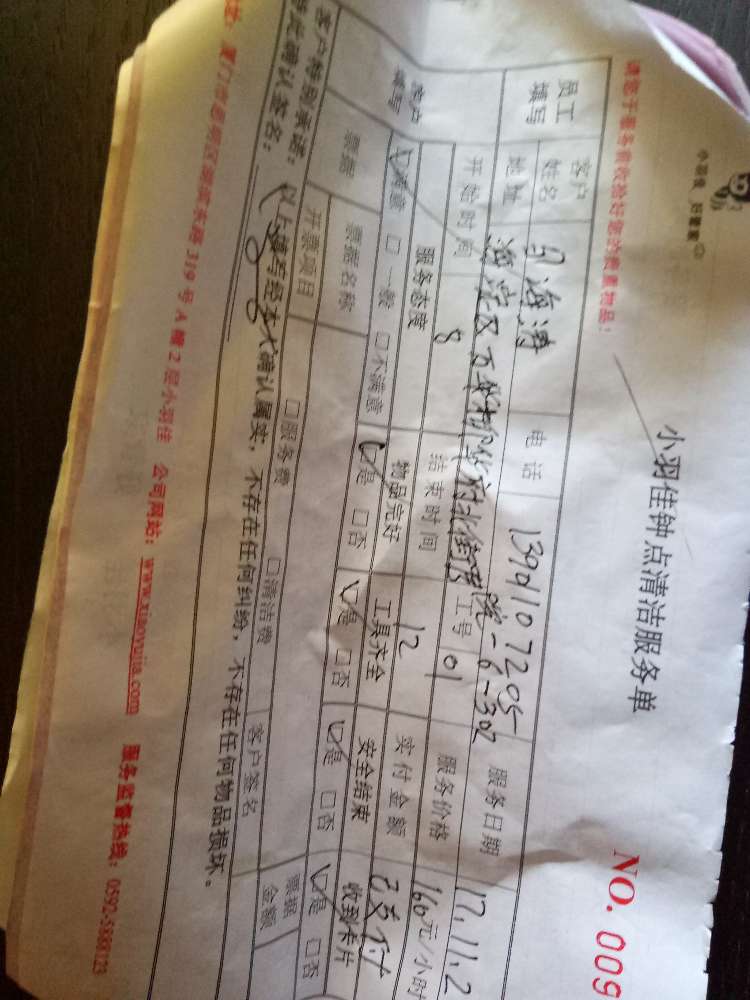 小羽佳 好管家
请您于服务前收拾好您的贵重物品!
小羽佳钟点清洁服务单
NO. 009
员工填写 客户姓名 海清 电话 13941107205 服务日期 17.11.2
地址 海淀区万 华府北街 院一6-302
开始时间 8 结束时间 12 工号 01 服务价格 160元/小时
实付金额 已支付
客户填写 服务态度 物品完好 工具齐全 安全结束 收到卡片
☑满意 □一般 □不满意 ☑是 □否 ☑是 □否 ☑是 □否 ☑是 □否
票据 票据名称 □服务费 □清洁费 票据金额
开票项目 客户签名
客户特别承诺:以上填写经本人确认属实,不存在任何纠纷,不存在任何物品损坏。
特此确认签名:
厦门市思明区 319号A幢2层小羽佳 公司网站:www.xiaoyujia.com 服务监督热线:0592-5888123